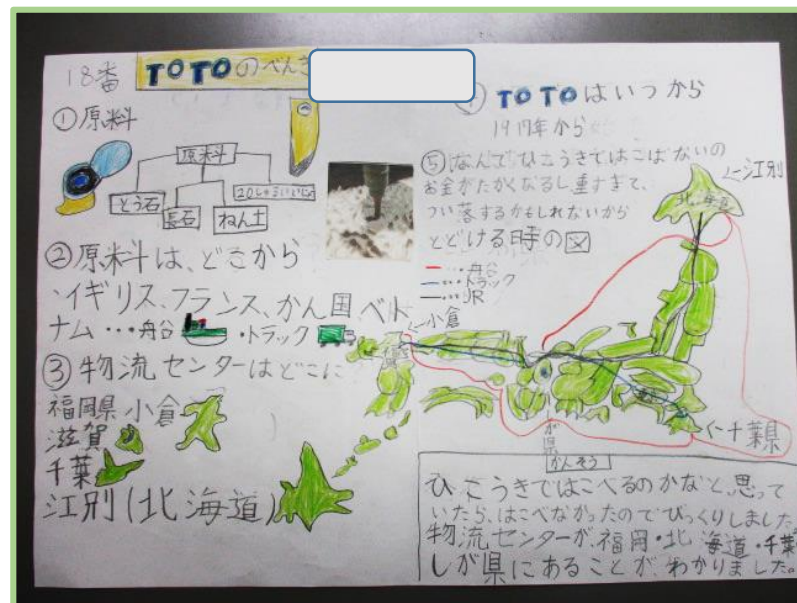 18番
TOTOのべんき
①原料
原料
とう石
長石
ねん土
20しゅるいいじょう
②原料は、どこから
・イギリス、フランス、かん国ベト
ナム…舟谷 ・トラック
③物流センターはどこに
福岡県小倉
滋賀
千葉
江別(北海道)
TOTOはいつから
1917年から
⑤なんでひこうきではこばないの
お金がたかくなるし重すぎて、
つい落するかもしれないから
とどける時の図
…舟谷
…トラック
…JR
←江別
北海道
小倉
←千葉県
が県
かんそう
ひこうきではこべるのかなと思って
いたら、はこべなかったのでびっくりしました。
物流センターが、福岡・北海道・千葉
しが県にあることが、わかりました。